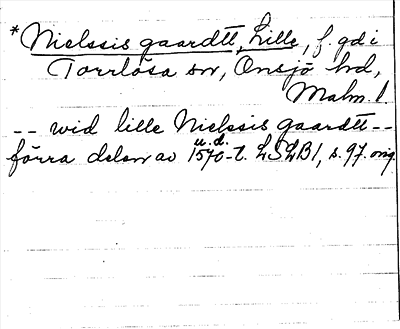 *Nielssis gaardtt, Lille, f. gd i
Torrlösa sn, Onsjö hd,
Malm. l.
-- wid lille Nielssis gaardtt --
u.d.
förra delen av 1570-t. LSLB 1, s. 97. orig.